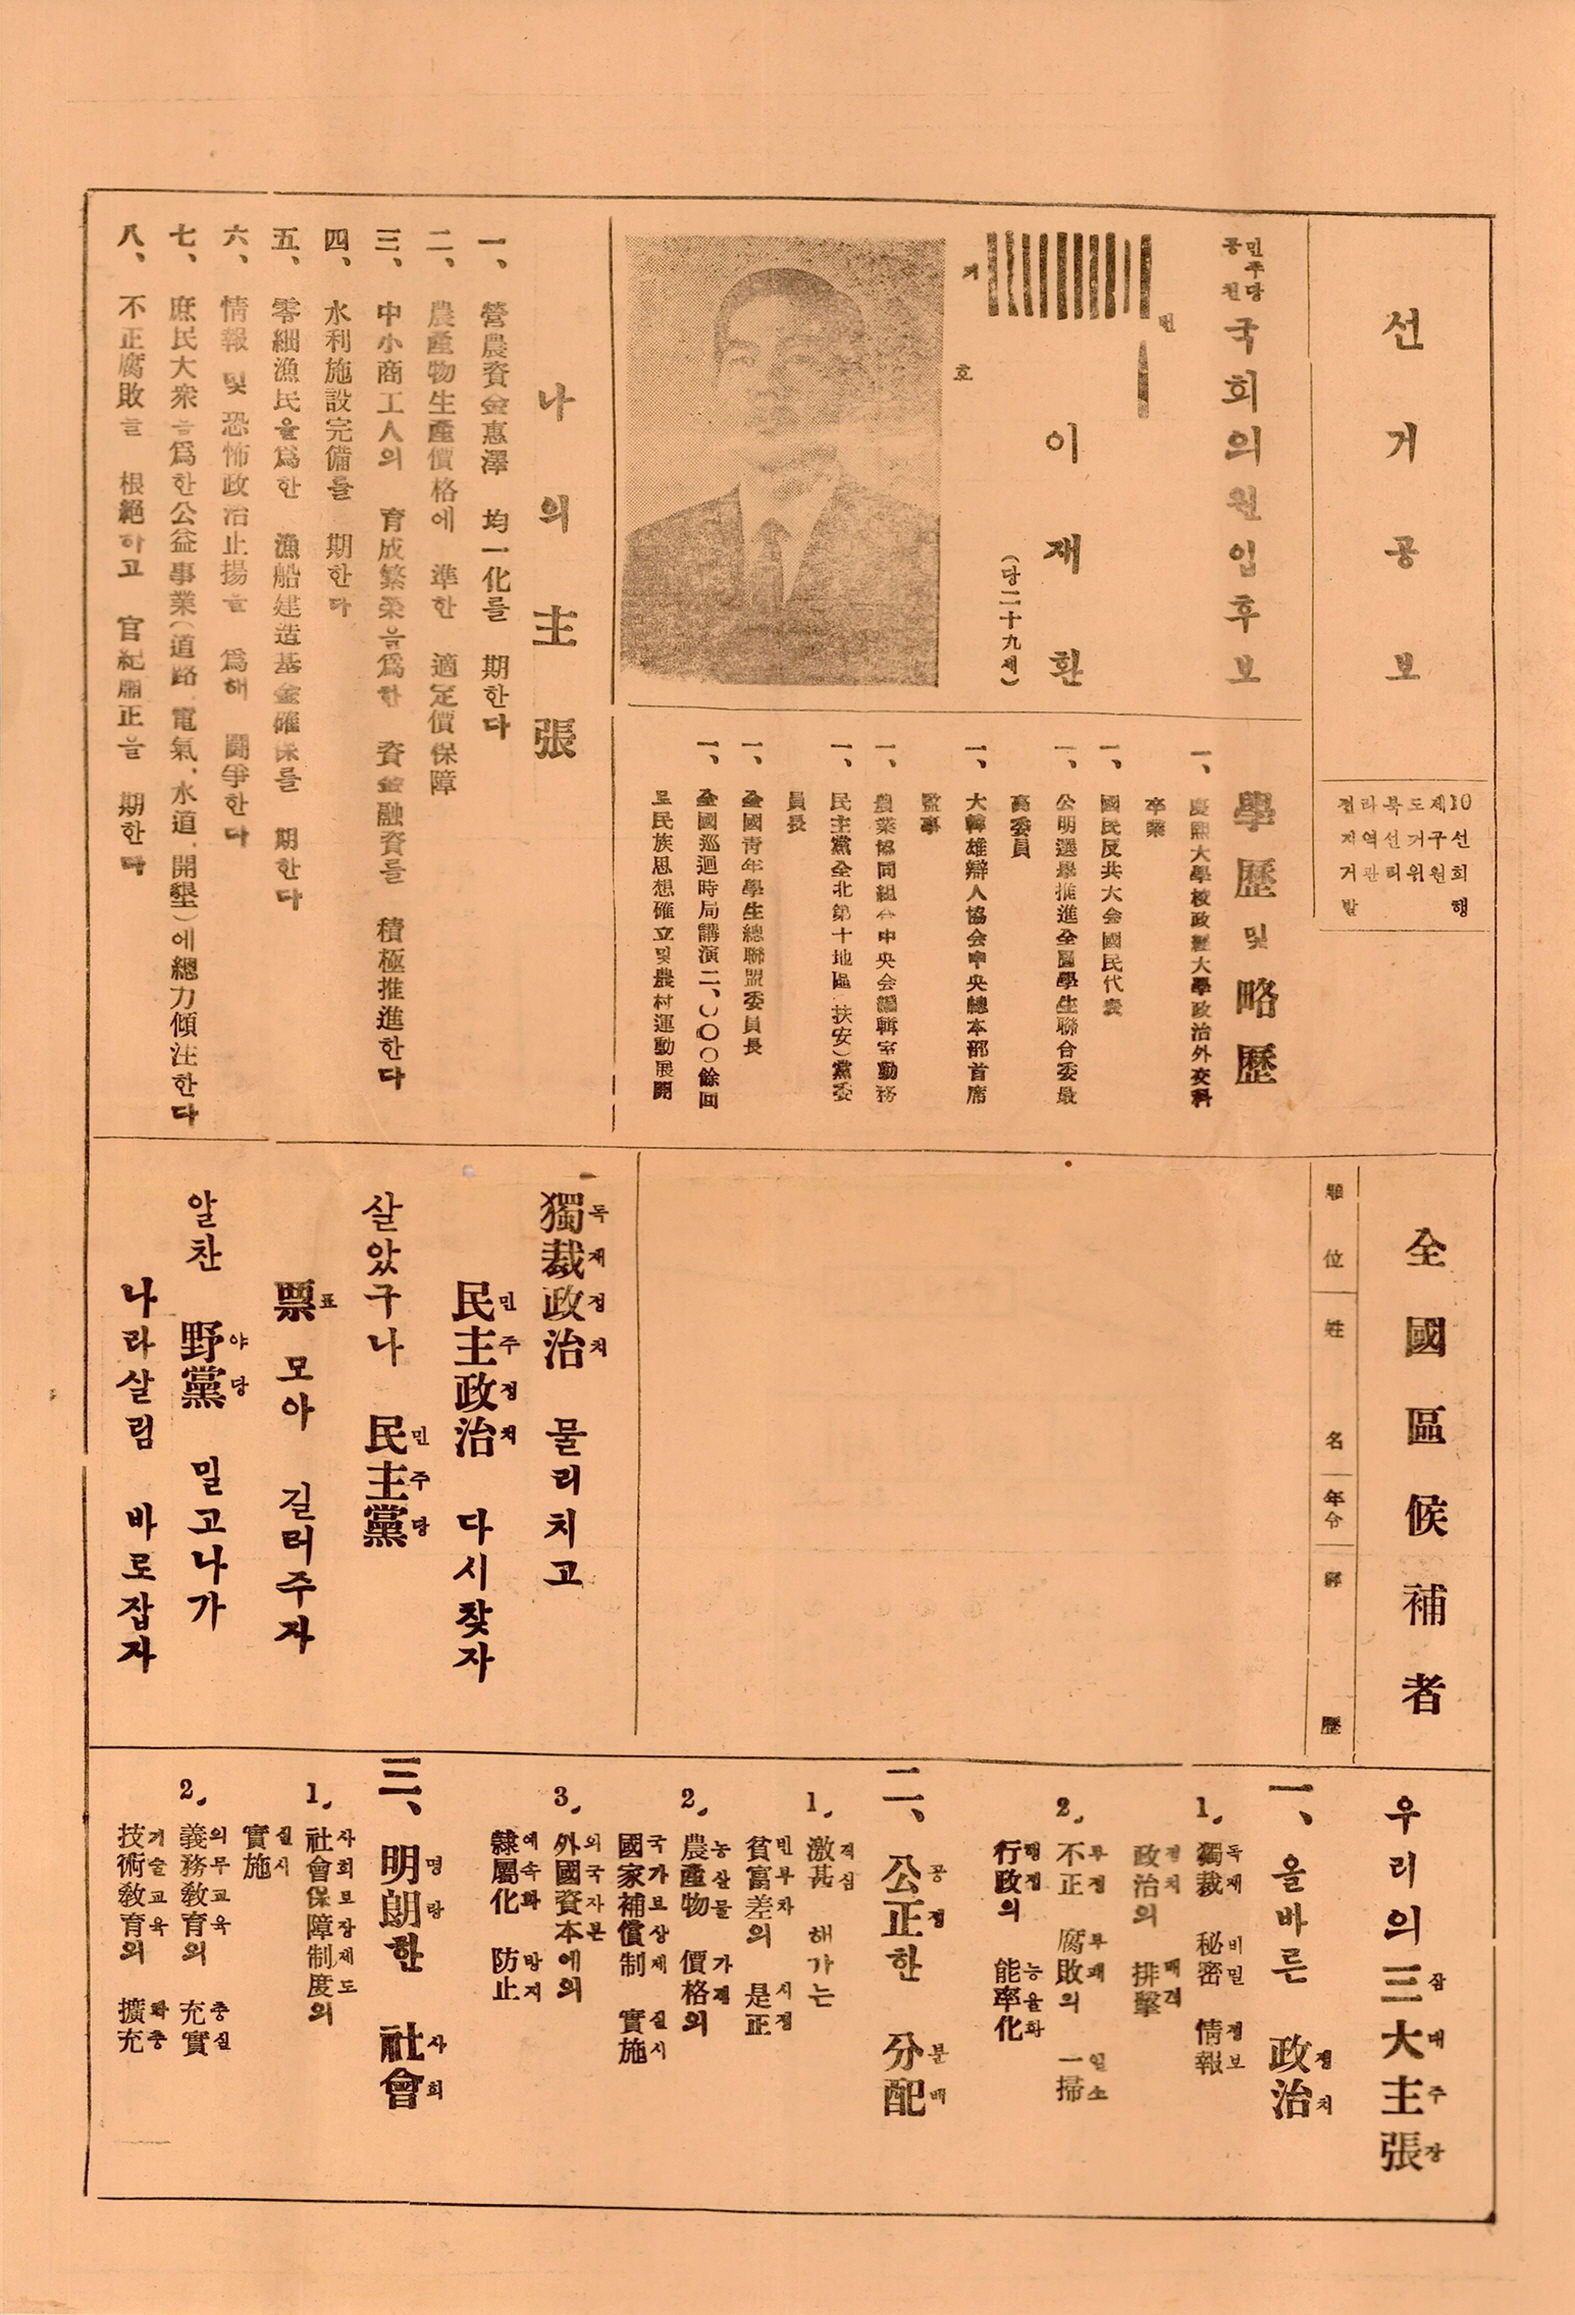 선거공보
전라북도제10
지역선거구선
거관리위원회
발행
민주당
공천
국회의원입후보
이재환
(당二十九세)
기호
번
學歷 및 略歷
一、慶熙大學校政經大學政治外交科
卒業
一、國民反共大会國民代表
一、公明選擧推進全國學生聯合委最
高委員
一、大韓雄辯人協会中央總本部首席
監事
一、農業協同組合中央会編輯室勤務
一、民主黨全北第十地區(扶安)黨委
員長
一、全國靑年學生總聯盟委員長
一、全國巡迴時局講演二、〇〇〇餘回
로民族思想確立및農村運動展開
나의 主張
一、營農資金惠澤 均一化를 期한다
二、農產物生產價格에 準한 適定價保障
三、中小商工人의 育成繁榮을爲한 資金融資를 積極推進한다
四、水利施設完備를 期한다
五、零細漁民을爲한 漁船建造基金確保를 期한다
六、情報 및 恐怖政治止揚을 爲해 鬪爭한다
七、庶民大衆을爲한公益事業(道路、電氣、水道、開墾)에總力傾注한다
八、不正腐敗를 根絕하고 官紀肅正을 期한다
全國區候補者
順位
姓名
年令
經歷
獨裁政治 물리치고
독재정치
民主政治 다시찾자
민주정치
살았구나 民主黨
민주당
票 모아 길러주자
표
알찬 野黨 밀고나가
야당
나라살림 바로잡자
우리의三大主張
삼대주장
一、올바른 政治
정치
1. 獨裁 秘密 情報
독재 비밀 정보
政治의 排擊
정치 배격
2. 不正 腐敗의 一掃
부정 부패 일소
行政의 能率化
행정 능율화
二、公正한 分配
공정 분배
1. 激甚 해가는
격심
貧富差의 是正
빈부차 시정
2. 農產物 價格의
농산물 가격
國家補償制 實施
국가보상제 실시
3. 外國資本에의
외국자본
隸屬化 防止
예속화 방지
三、明朗한 社會
명랑 사회
1. 社會保障制度의
사회보장제도
實施
실시
2. 義務敎育의 充實
의무교육 충실
技術敎育의 擴充
기술교육 확충